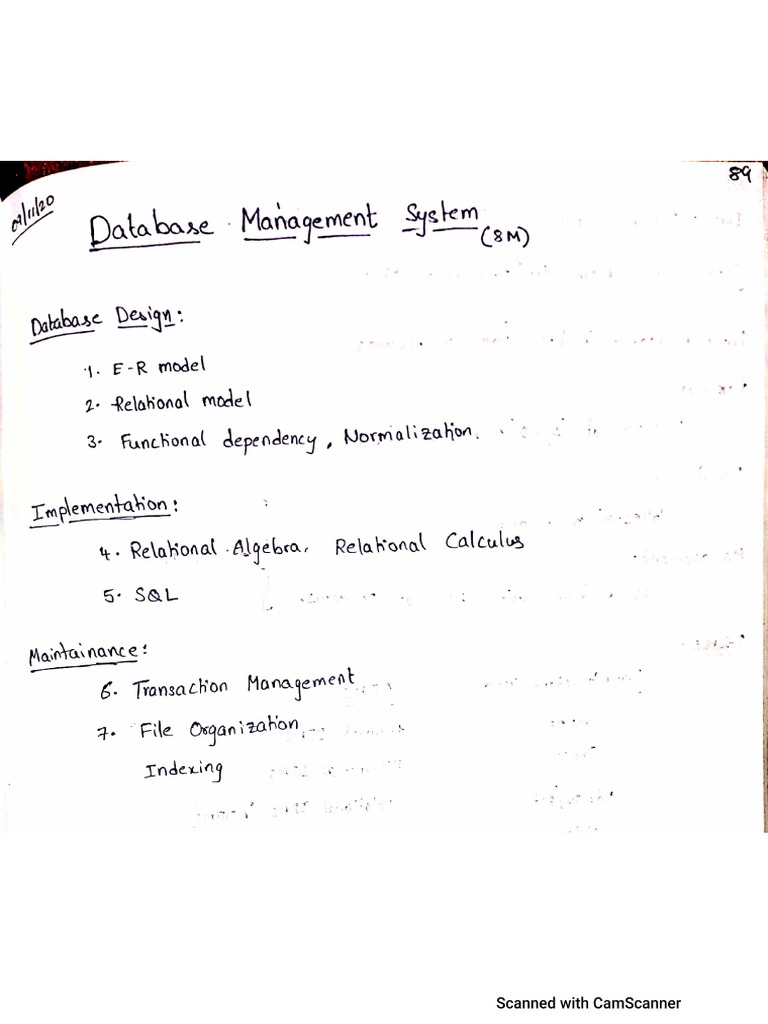 89
Database Management System
(8M)
Database Design:
1. E-R model
2. Relational model
3. Functional dependency, Normalization.
Implementation:
4. Relational Algebra, Relational Calculus
5. SQL
Maintainance:
6. Transaction Management
7. File Organization
Indexing
Scanned with CamScanner